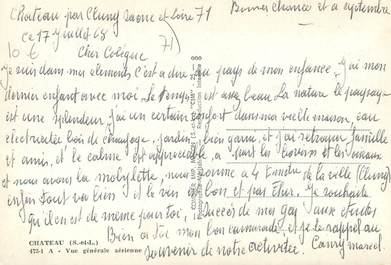 Chateau par Cluny Saone et Loire 71
Bonne chance et a septembre
ce 17 juillet 68
71)
10 €
Cher Colègue
Je suis dans mes elements c'est a dire au pays de mon enfance. J'ai mon
dernier enfant avec moi. le temps est assez beau La nature le paysage
est une splendeur, j'ai un certain confort dans ma vieille maison, eau
electricitée bois de chauffage, jardin, bien garni et j'ai retrouver famille
et amis, et le calme est appreciable, a part les
et nous avons la mobylette, nous somme a 4 Km de la ville (Cluny)
enfin tout va bien et le vin est bon et pas cher. Je souhaite
qu'il en est de même pour toi, le succès de mon gas aux etudes
Bien a toi mon bon camarade et je te rappel au
souvenir de notre Marcel
CHATEAU (S.-et-L.)
472-1 A - Vue générale aérienne